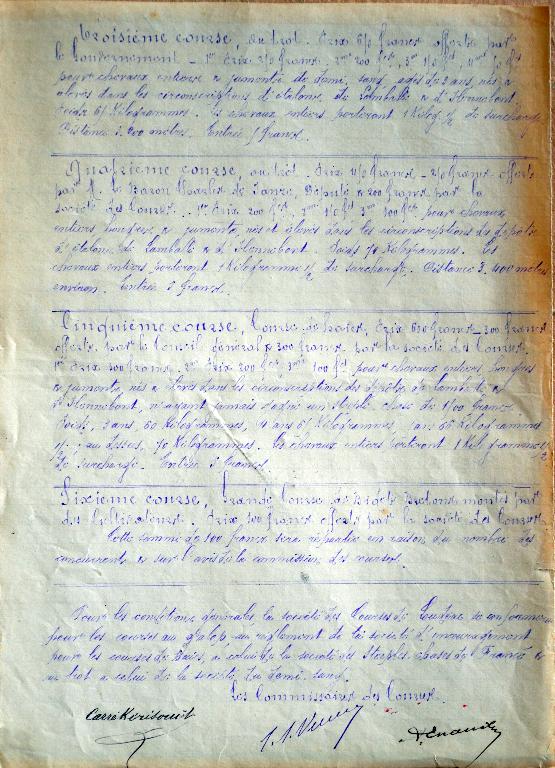 Troisième course, au trot. Prix francs offerts par
le Gouvernement - 1er Prix francs. 2me 200 fcs,
pour chevaux entiers & juments de demi sang, agés de 3 ans, nés &
élevés dans les circonscriptions d'étalons, de Lamballe & d'Hennebont
Poids Kilogrammes. Les chevaux entiers porteront 1 Kilog 1/2 de surcharge
Distance 3.200 mètres. Entrée francs.
Quatrième course, au trot. Prix francs - francs offerts
par M. le Baron Charles de Janzé, Député & 200 francs par la
société des Courses. 1er Prix 200 fcs, 2me 3me 100 fcs pour chevaux
entiers, hongres & juments, nés et élevés dans les circonscriptions des dépôts
d'étalons de Lamballe & d'Hennebont. Poids 70 Kilogrammes. Les
chevaux entiers porteront 1 Kilogramme 1/2 de surcharge. Distance 3.400 mètres
environ. Entrée francs.
Cinquième course, Course de haies, Prix francs - 300 francs
offerts par le Conseil général & 300 francs par la société des Courses.
1er Prix francs. 2me Prix 200 fcs 3me 100 fcs pour chevaux entiers, hongres
& juments, nés & élevés dans les circonscriptions des dépôts de Lamballe &
d'Hennebont, n'ayant jamais gagné un steeple chase de francs
Poids, 3 ans, 60 Kilogrammes, 4 ans Kilogrammes, ans Kilogrammes
1/2; au dessus, 70 Kilogrammes. Les chevaux entiers porteront 1 Kilogramme 1/2
de surcharge. Entrée francs.
Sixième course, Grande Course de Bidets Bretons montés par
des Cultivateurs. Prix 100 francs offerts par la société des Courses
Cette somme de 100 francs sera répartie en raison du nombre des
concurrents & sur l'avis de la commission des courses.
Pour les conditions générales la société des Courses de Loudéac se conformera
pour les courses au galop au règlement de la société d'encouragement
pour les courses de haies, à celui de la société des Steeples chases de France &
au trot à celui de la société du demi-sang.
Les Commissaires des Courses.
Carré Kérisouët